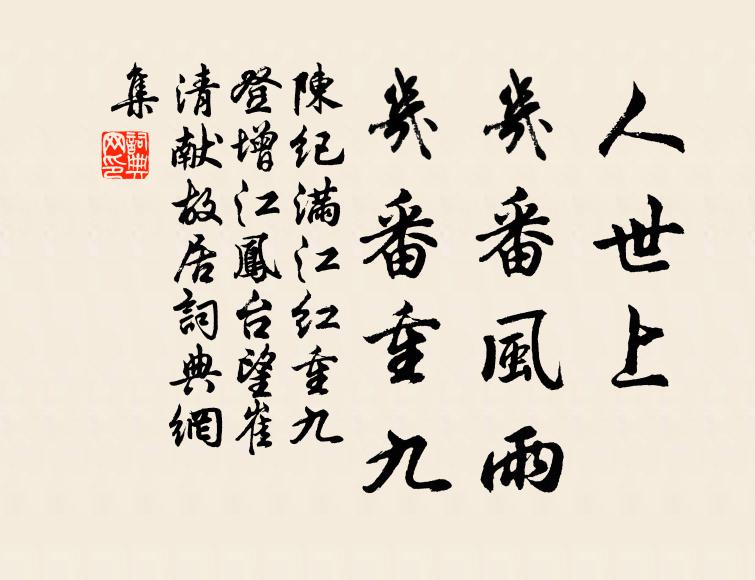 人世上
幾番風雨
幾番重九
陳纪滿江红重九
登增江鳳台望崔
清献故居詞典網
集
詞典
网印